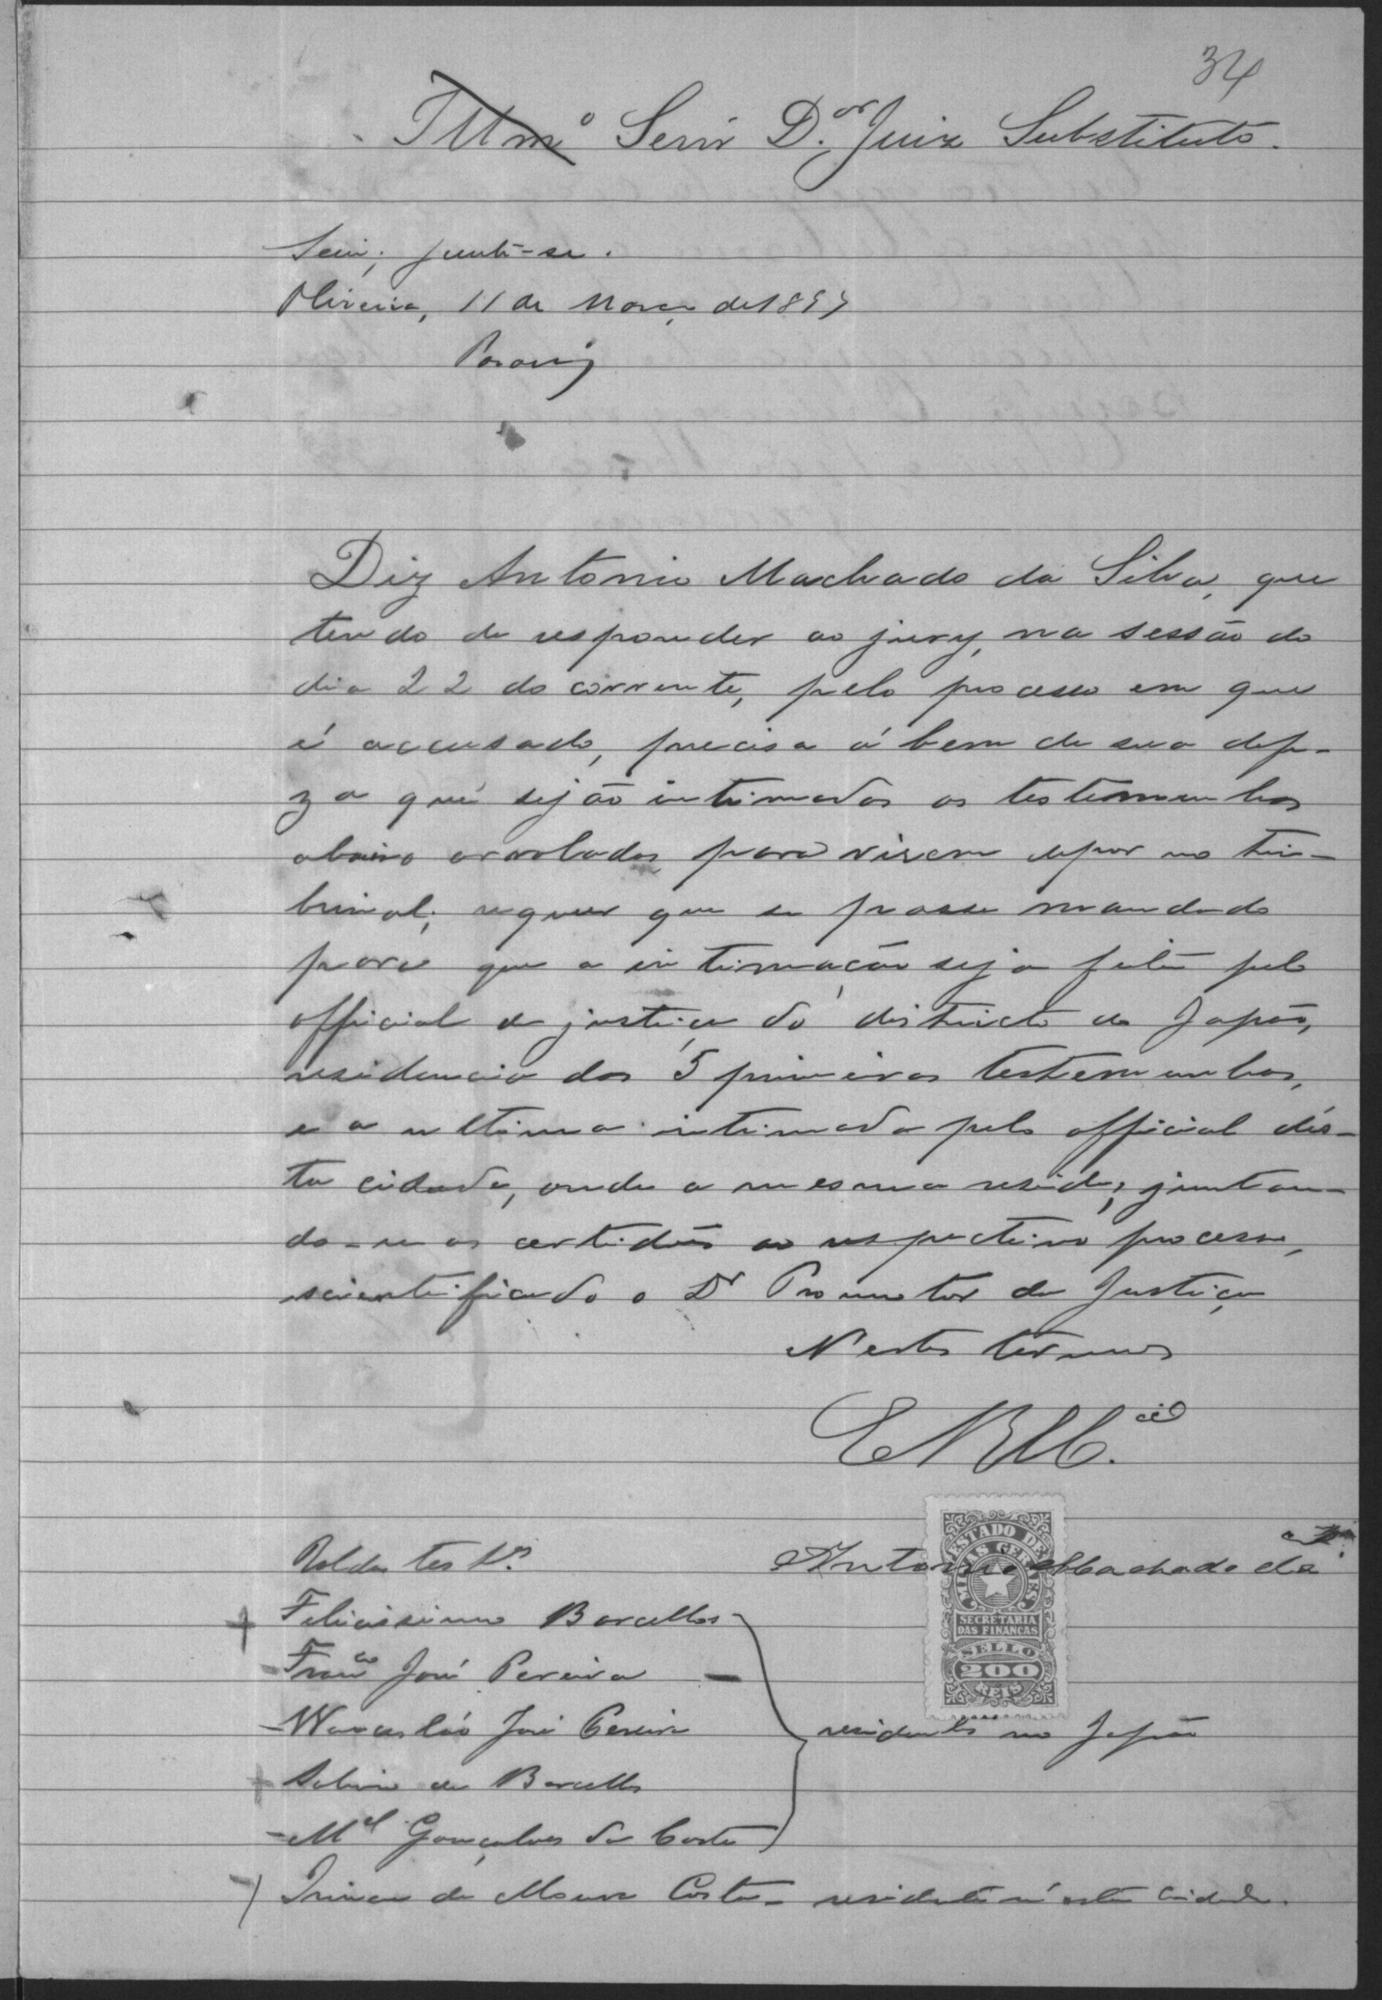 34
Illmº Senr D.or Juiz Substituto.
Sim; junte-se.
Oliveira, 11 de Março de 1897
Diz Antonio Machado da Silva, que
tendo de responder ao jury, na sessão do
dia 22 do corrente, pelo processo em que
é accusado, precisa á bem de sua defe-
za que sejão intimadas as testemunhas
abaixo arroladas, para virem depor no tri-
bunal; requer que se passe mandado
para que a intimação seja feita pelo
official de justiça do districto do Japão,
residencia das 5 primeiras testemunhas,
e a ultima intimada pelo official dés-
ta cidade, onde a mesma reside; juntan-
do-se as certidões ao respectivo processo,
scientificando o Dr Promotor de Justiça
Nestes termos
E R Mce
Rol das testas
Antonio Machado da
ESTADO DE
MINAS GERAES
SECRETARIA
DAS FINANÇAS
SELLO
200
REIS
Felicissimo Barcellos
Franco José Pereira
Wencesláo José Pereira
residentes no Japão
Sabino de Barcellos
Mel Gonçalves da Costa
de Moura Costa - residente n'esta cidade.